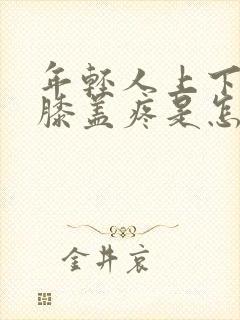 年轻人上下
膝盖疼是怎
金井哀